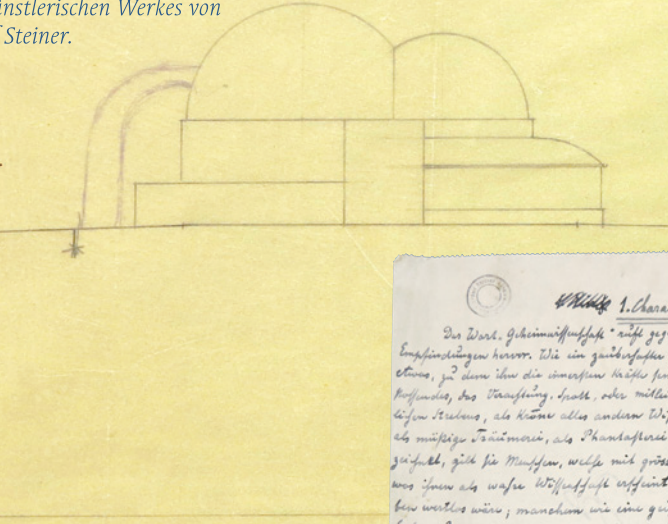 nstlerischen Werkes von
Steiner.
1. Chara
Das Wort „Geheimwissenschaft“ ruft geg
Empfindungen hervor. Wie ein zauberhafter
etwas, zu dem ihn die innersten Kräfte
das Verachtung, Spott, oder mitlei
lichen Strebens, als Krone alles andern Wis
als müßige Träumerei, als Phantasterei
zeichnet, gilt sie Menschen, welche mit gröss
was ihnen als wahre Wissenschaft erscheint
ben wertlos wäre; manchem wie eine gei